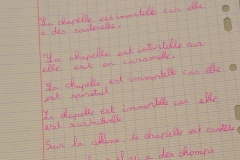 La chapelle est immortelle car elle
a des
La chapelle est immortelle car
elle est en caramelle.
La chapelle est immortelle car elle
est
La chapelle est immortelle car elle
est surnaturelle
Sur la colline, la chapelle est
a des champs